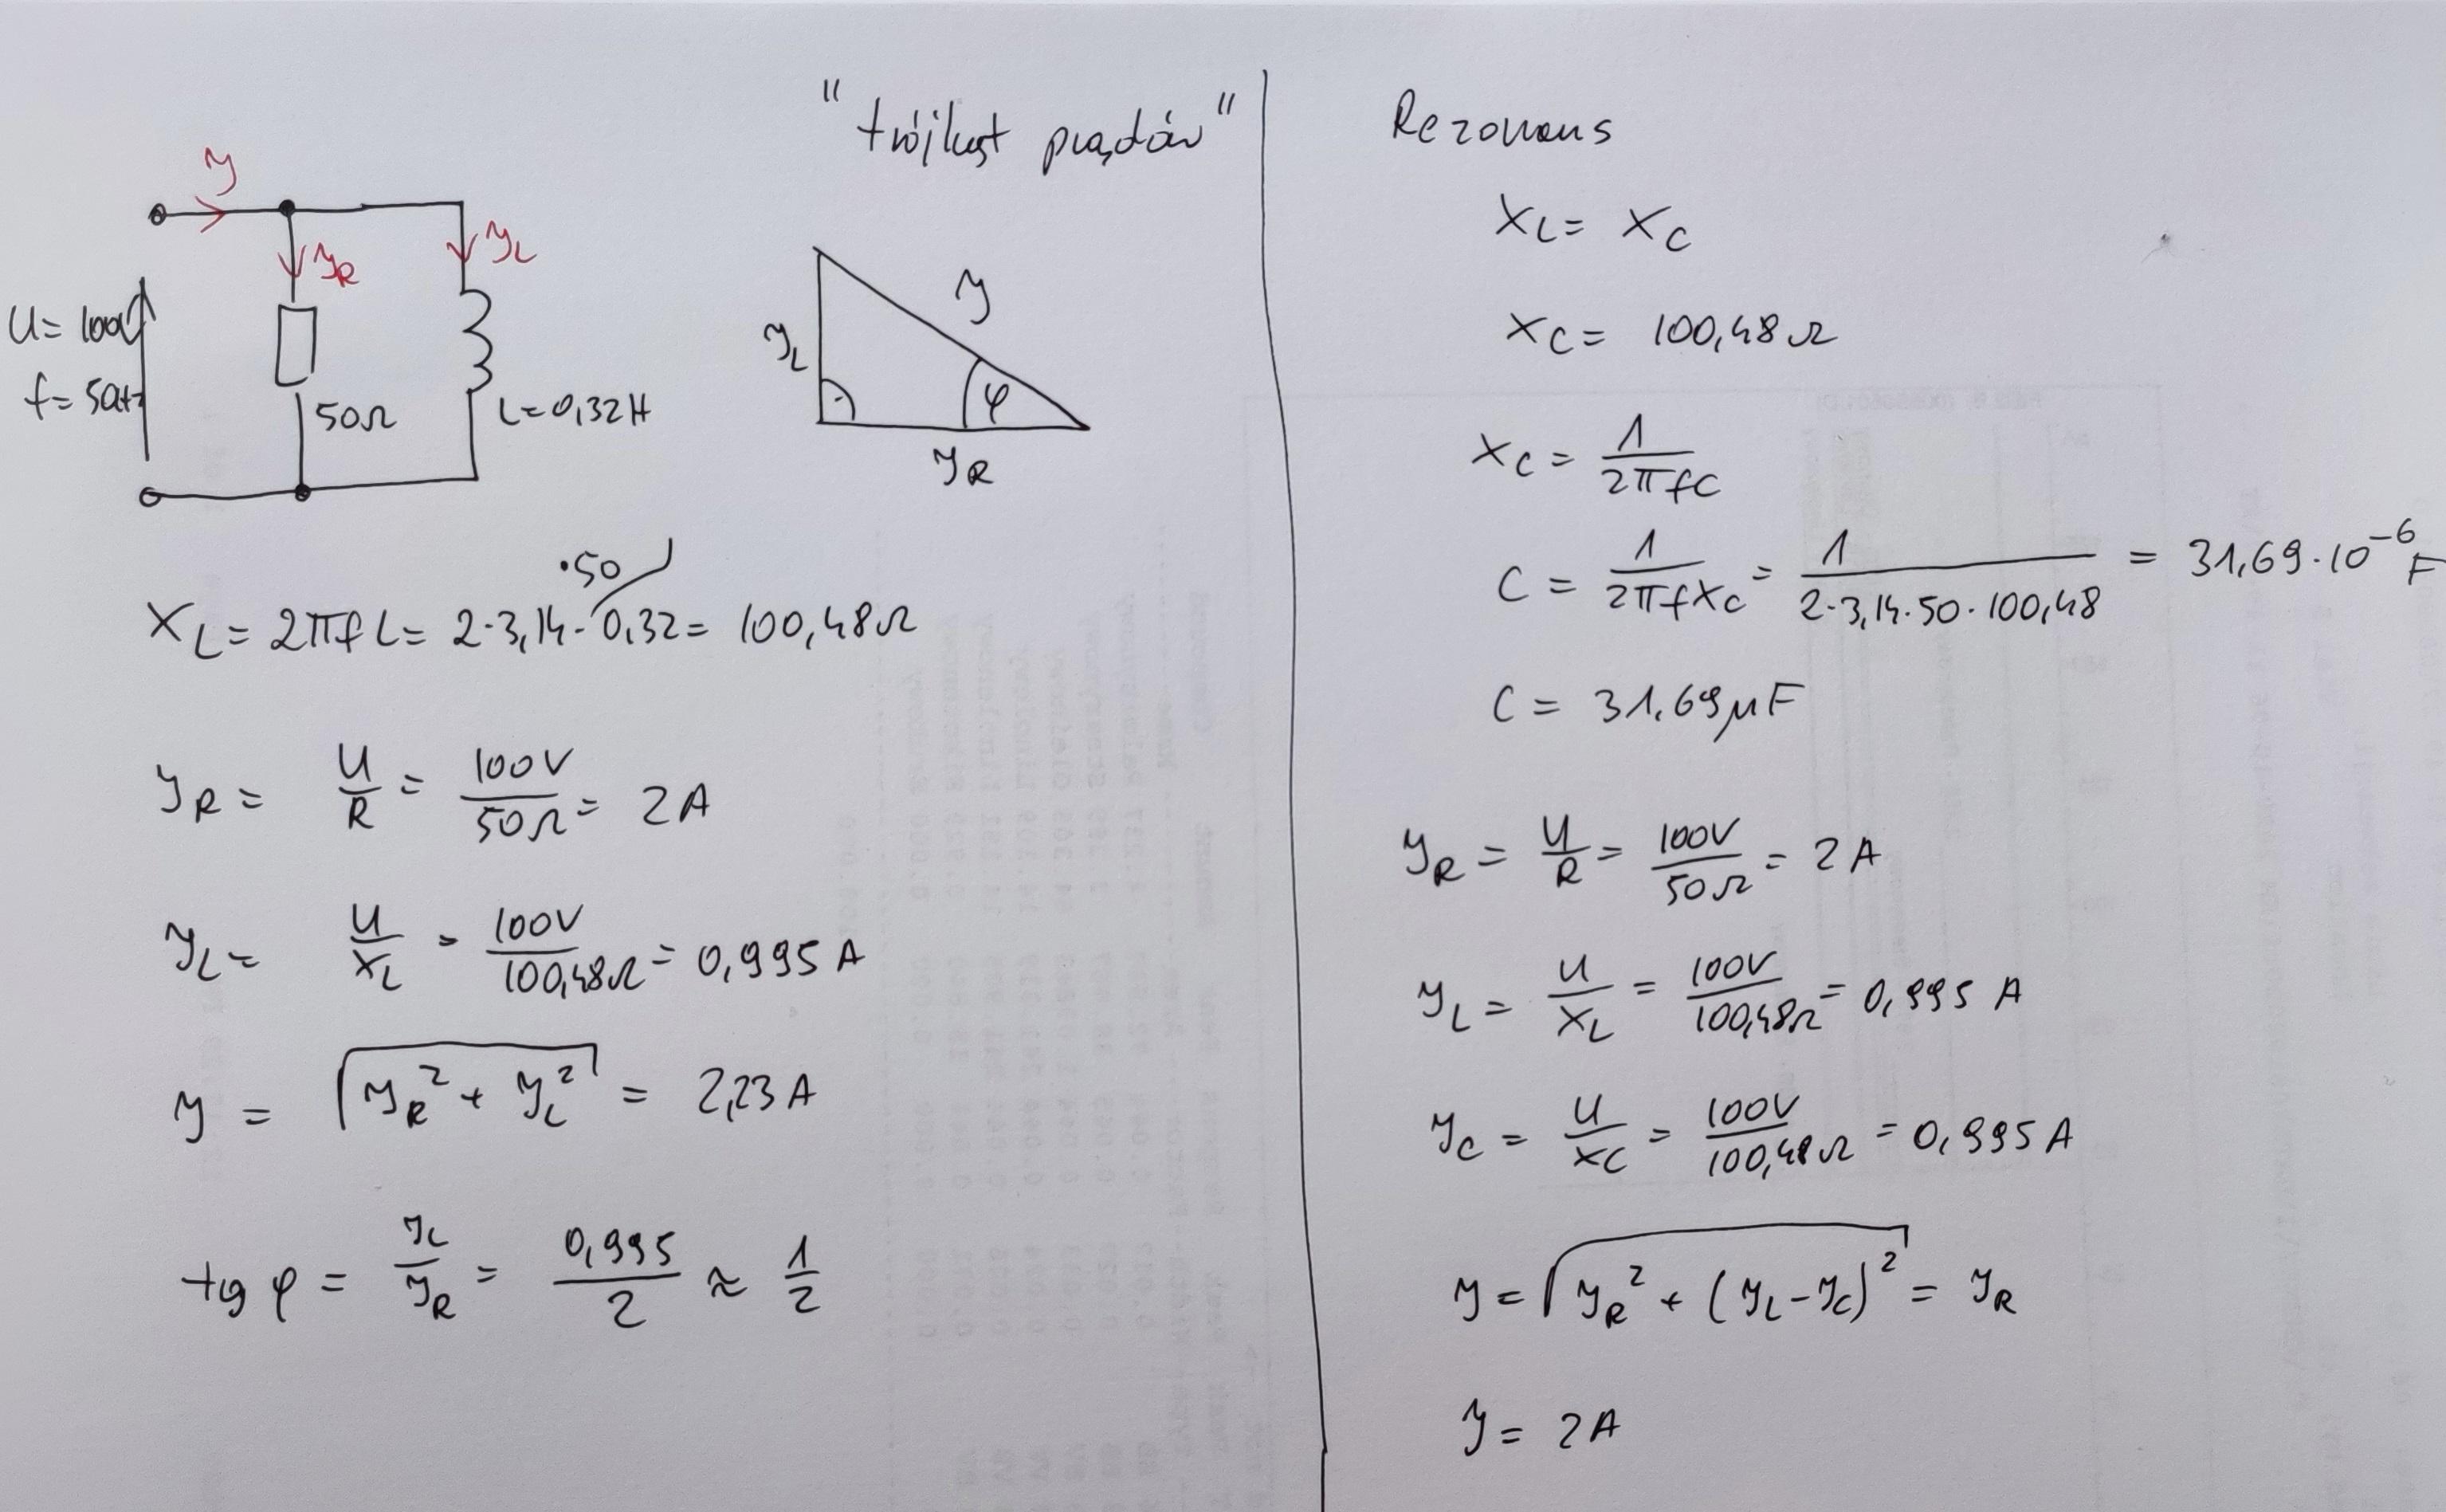 "trójkąt prądów"
I
I_R
I_L
U= 100V
f= 50Hz
50Ω
L=0,32H
I_L
I
φ
I_R
·50
X_L= 2πfL= 2·3,14·0,32= 100,48Ω
I_R = U/R = 100V/50Ω = 2A
I_L = U/X_L = 100V/100,48Ω = 0,995 A
I = √(I_R² + I_L²) = 2,23A
tg φ = I_L/I_R = 0,995/2 ≈ 1/2
Rezonans
X_L= X_C
X_C= 100,48Ω
X_C = 1/(2πfC)
C = 1/(2πfX_C) = 1/(2·3,14·50·100,48) = 31,69·10⁻⁶ F
C = 31,69μF
I_R = U/R = 100V/50Ω = 2A
I_L = U/X_L = 100V/100,48Ω = 0,995 A
I_C = U/X_C = 100V/100,48Ω = 0,995A
I = √(I_R² + (I_L-I_C)²) = I_R
I = 2A